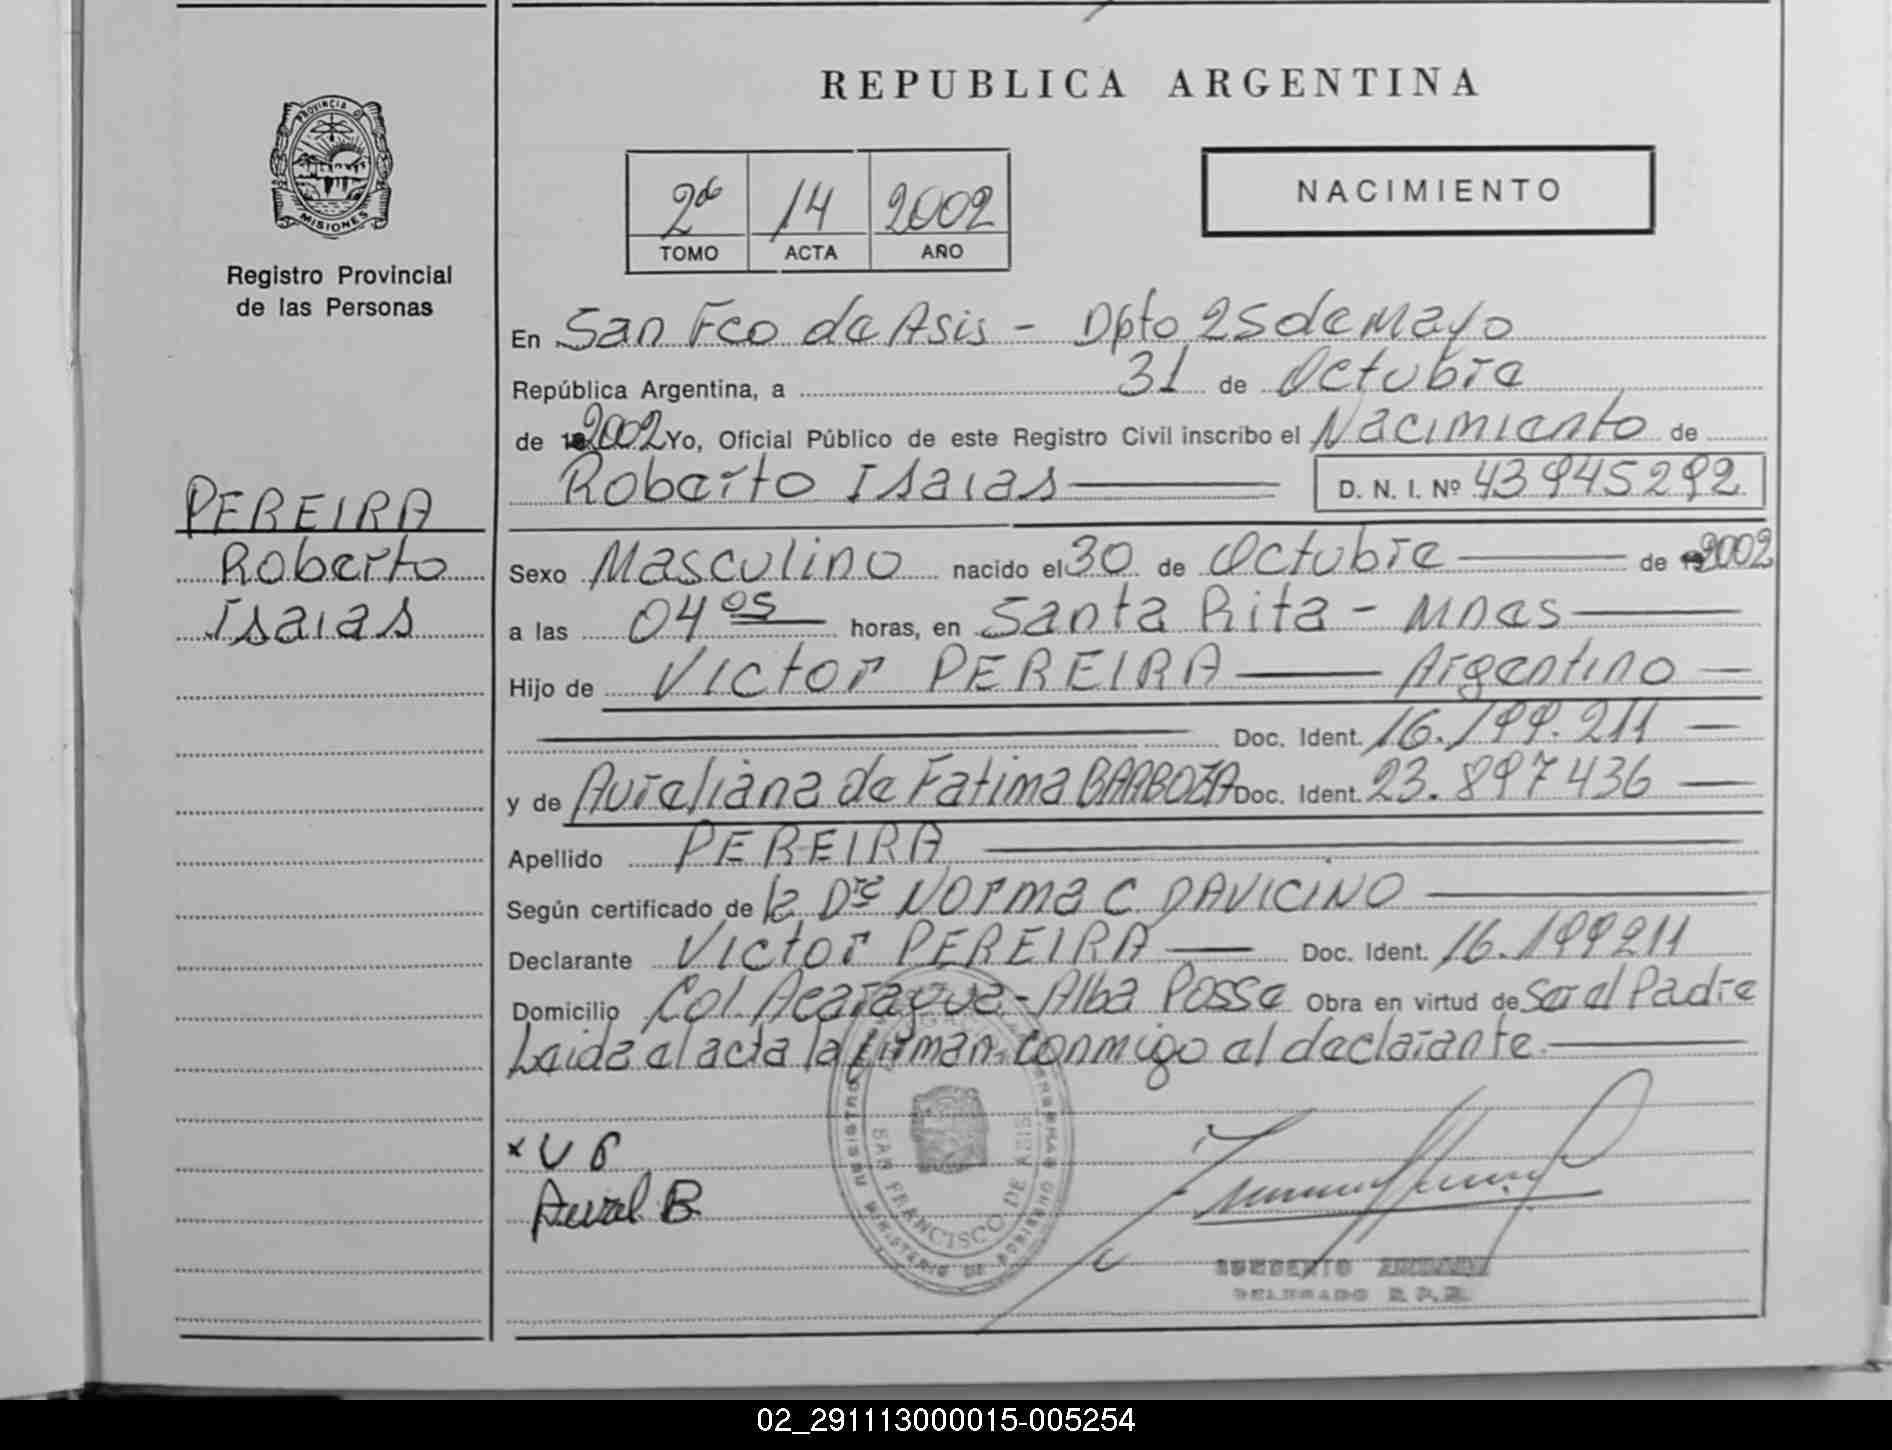 REPUBLICA ARGENTINA
PROVINCIA D
MISIONES
Registro Provincial
de las Personas
2do 14 2002
TOMO ACTA AÑO
NACIMIENTO
En San Fco de Asis - Dpto 25 de Mayo
República Argentina, a 31 de Octubre
de 2002 Yo, Oficial Público de este Registro Civil inscribo el Nacimiento de
Roberto Isaias D. N. I. Nº 43945292
PEREIRA
Roberto
Isaias
Sexo Masculino nacido el 30 de Octubre de 2002
a las 04 05 horas, en Santa Rita - Mnes
Hijo de Victor PEREIRA Argentino
Doc. Ident. 16.199.211
y de Aureliana de Fatima BARBOZA Doc. Ident. 23.897436
Apellido PEREIRA
Según certificado de la Dra Norma C. DAVICINO
Declarante Victor PEREIRA Doc. Ident. 16.199211
Domicilio Col. Acaragua - Alba Posse Obra en virtud de ser el Padre
Leida el acta la firman conmigo el declarante.
x V P
Aurel B
SAN FRANCISCO DE ASIS
MINISTERIO DE GOBIERNO
DELEGADO R.P.P.
02_291113000015-005254